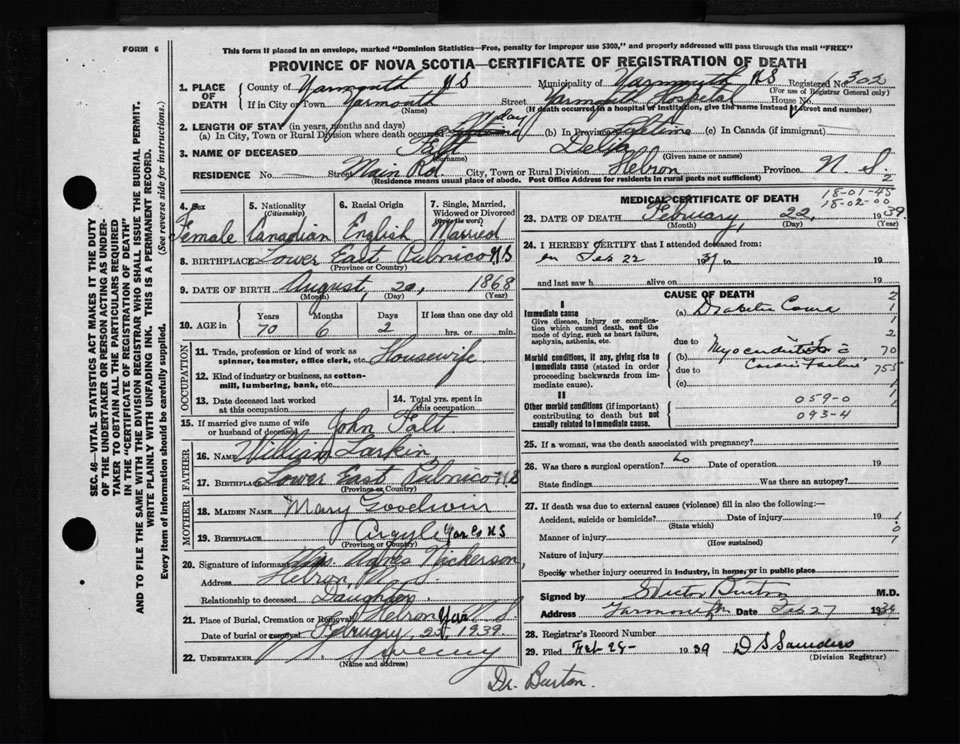 FORM 6
This form if placed in an envelope, marked "Dominion Statistics—Free, penalty for improper use $300," and properly addressed will pass through the mail "FREE"
PROVINCE OF NOVA SCOTIA—CERTIFICATE OF REGISTRATION OF DEATH
1. PLACE OF DEATH County of Yarmouth NS Municipality of Yarmouth NS Registered No. 302
(For use of Registrar General only)
If in City or Town Yarmouth Street Yarmouth Hospital House No.
(Name) (If death occurred in a hospital of institution, give the name instead of street and number)
2. LENGTH OF STAY (in years, months and days)
(a) In City, Town or Rural Division where death occurred day (b) In Province Lifetime (c) In Canada (if immigrant)
3. NAME OF DECEASED Falt Delia
(Surname) (Given name or names)
RESIDENCE No. Street Main Rd. City, Town or Rural Division Hebron Province N. S.
(Residence means usual place of abode. Post Office Address for residents in rural parts not sufficient)
SEC. 46—VITAL STATISTICS ACT MAKES IT THE DUTY
OF THE UNDERTAKER OR PERSON ACTING AS UNDER-
TAKER TO OBTAIN ALL THE PARTICULARS REQUIRED
IN THE "CERTIFICATE OF REGISTRATION OF DEATH"
AND TO FILE THE SAME WITH THE DIVISION REGISTRAR WHO SHALL ISSUE THE BURIAL PERMIT.
WRITE PLAINLY WITH UNFADING INK. THIS IS A PERMANENT RECORD.
Every item of information should be carefully supplied. (See reverse side for instructions.)
4. Sex Female
5. Nationality (Citizenship) Canadian
6. Racial Origin English
7. Single, Married, Widowed or Divorced (write the word) Married
8. BIRTHPLACE Lower East Pubnico NS
(Province or Country)
9. DATE OF BIRTH August, 20, 1868
(Month) (Day) (Year)
10. AGE in Years Months Days If less than one day old
70 6 2 hrs. or min.
OCCUPATION
11. Trade, profession or kind of work as spinner, teamster, office clerk, etc. Housewife
12. Kind of industry or business, as cotton-mill, lumbering, bank, etc.
13. Date deceased last worked at this occupation
14. Total yrs. spent in this occupation
15. If married give name of wife or husband of deceased John Falt
FATHER
16. NAME William Larkin
17. BIRTHPLACE Lower East Pubnico NS
(Province or Country)
MOTHER
18. MAIDEN NAME Mary Goodwin
19. BIRTHPLACE Argyle Yar Co NS
(Province or Country)
20. Signature of informant Mrs. Nickerson,
Address Hebron, N. S.
Relationship to deceased Daughter
21. Place of Burial, Cremation or Removal Hebron Yar N S
Date of burial or removal February, 1939.
22. UNDERTAKER
(Name and address)
MEDICAL CERTIFICATE OF DEATH
18-01-45
18-02-00
2
23. DATE OF DEATH February, 22, 1939
(Month) (Day) (Year)
24. I HEREBY CERTIFY that I attended deceased from:
on Feb 22 1939 to 19
and last saw h alive on 19
CAUSE OF DEATH
I
Immediate cause
Give disease, injury or complication which caused death, not the mode of dying, such as heart failure, asphyxia, asthenia, etc.
(a) Diabetic Coma
due to
Morbid conditions, if any, giving rise to immediate cause (stated in order proceeding backwards from immediate cause).
(b) Myocarditis
due to
(c)
II
Other morbid conditions (if important) contributing to death but not causally related to immediate cause.
059-0
093-4
25. If a woman, was the death associated with pregnancy?
26. Was there a surgical operation? no Date of operation 19
State findings Was there an autopsy?
27. If death was due to external causes (violence) fill in also the following:—
Accident, suicide or homicide? Date of injury 19
(State which)
Manner of injury
(How sustained)
Nature of injury
Specify whether injury occurred in industry, in home, or in public place
Signed by Burton M.D.
Address Yarmouth Date Feb 27 1939
28. Registrar's Record Number
29. Filed Feb 28 1939 D S Saunders
(Division Registrar)
Dr. Burton.